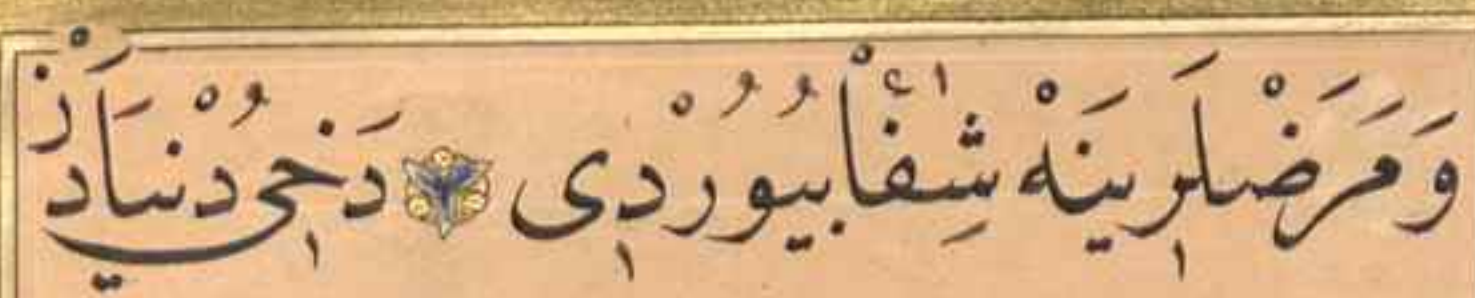 وَمَرَضْلَرِينَهْ شِفَاْ بُيُورْدِى دَخِي دُنْيَادَنْ